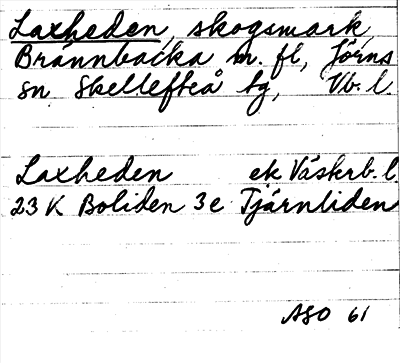 Laxheden, skogsmark,
Brännbacka m. fl, Jörns
sn Skellefteå tg, Vb. l.
Laxheden ek Väskrb. l
23 K Boliden 3e Tjärnliden
ASO 61